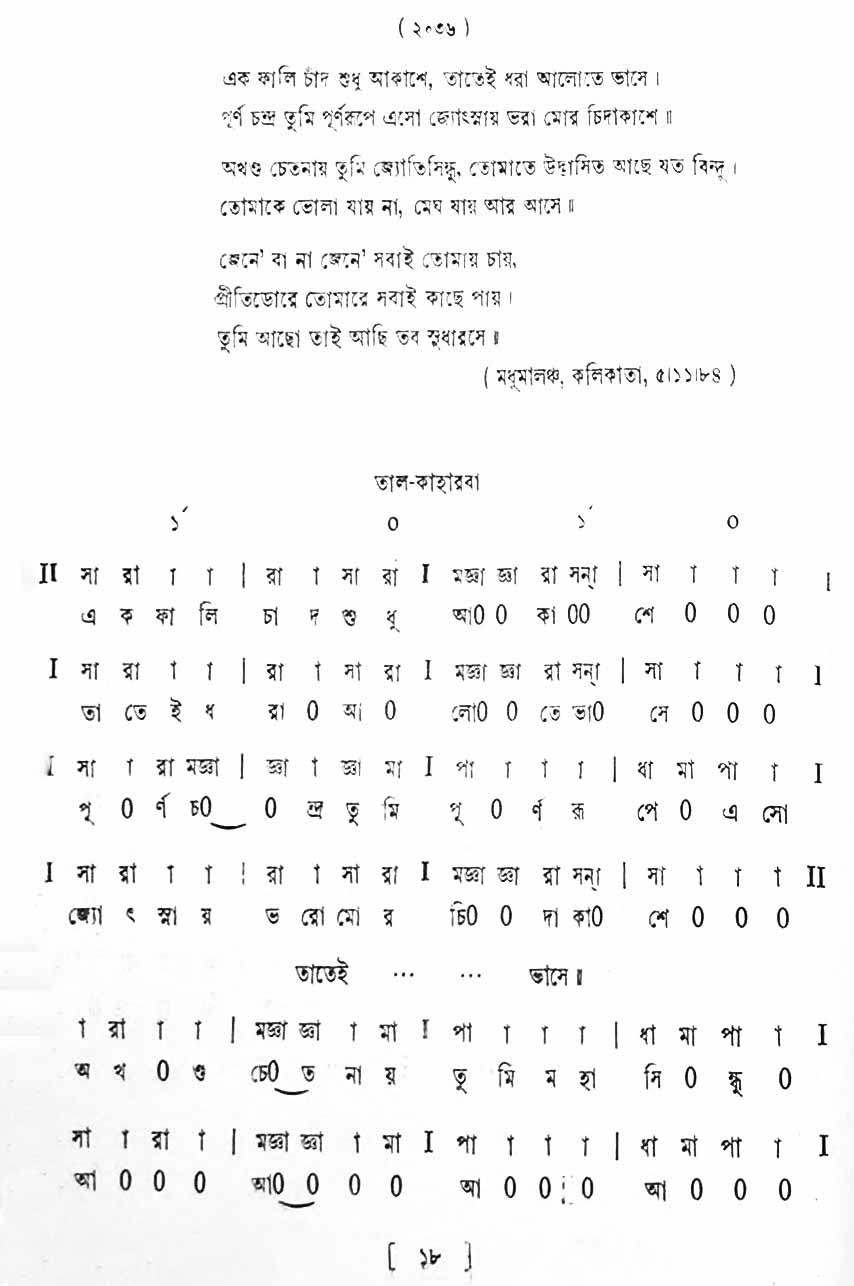 ( ২০৩৬ )
এক ফালি চাঁদ শুধু আকাশে, তাতেই ধরা আলোতে ভাসে।
পূর্ণ চন্দ্র তুমি পূর্ণরূপে এসো জ্যোৎস্নায় ভরা মোর চিদাকাশে॥
অখণ্ড চেতনায় তুমি জ্যোতিসিন্ধু, তোমাতে উদ্ভাসিত আছে যত বিন্দু।
তোমাকে ভোলা যায় না, মেঘ যায় আর আসে॥
জেনে' বা না জেনে' সবাই তোমায় চায়,
প্রীতিডোরে তোমারে সবাই কাছে পায়।
তুমি আছো তাই আছি তব সুধারসে॥
( মধুমালঞ্চ, কলিকাতা, ৫।১১।৮৪ )
তাল-কাহারবা
১´ ০ ১´ ০
II সা রা া া | রা া সা রা I মজ্ঞা জ্ঞা রা সন্া | সা া া া I
এ ক ফা লি চা দ শু ধু আ0 0 কা 00 শে 0 0 0
I সা রা া া | রা া সা রা I মজ্ঞা জ্ঞা রা সন্া | সা া া া I
তা তে ই ধ রা 0 আ 0 লো0 0 তে ভা0 সে 0 0 0
I সা া রা মজ্ঞা | জ্ঞা া জ্ঞা মা I পা া া া | ধা মা পা া I
পূ 0 র্ণ চ0 0 ন্দ্র তু মি পূ 0 র্ণ রূ পে 0 এ সো
I সা রা া া | রা া সা রা I মজ্ঞা জ্ঞা রা সন্া | সা া া া II
জ্যো ৎ স্না য় ভ রো মো র চি0 0 দা কা0 শে 0 0 0
তাতেই ... ... ভাসে॥
া রা া া | মজ্ঞা জ্ঞা া মা I পা া া া | ধা মা পা া I
অ খ 0 ণ্ড চে0 ত না য় তু মি ম হা সি 0 ন্ধু 0
সা া রা া | মজ্ঞা জ্ঞা া মা I পা া া া | ধা মা পা া I
আ 0 0 0 আ0 0 0 0 আ 0 0 0 আ 0 0 0
[ ১৮ ]